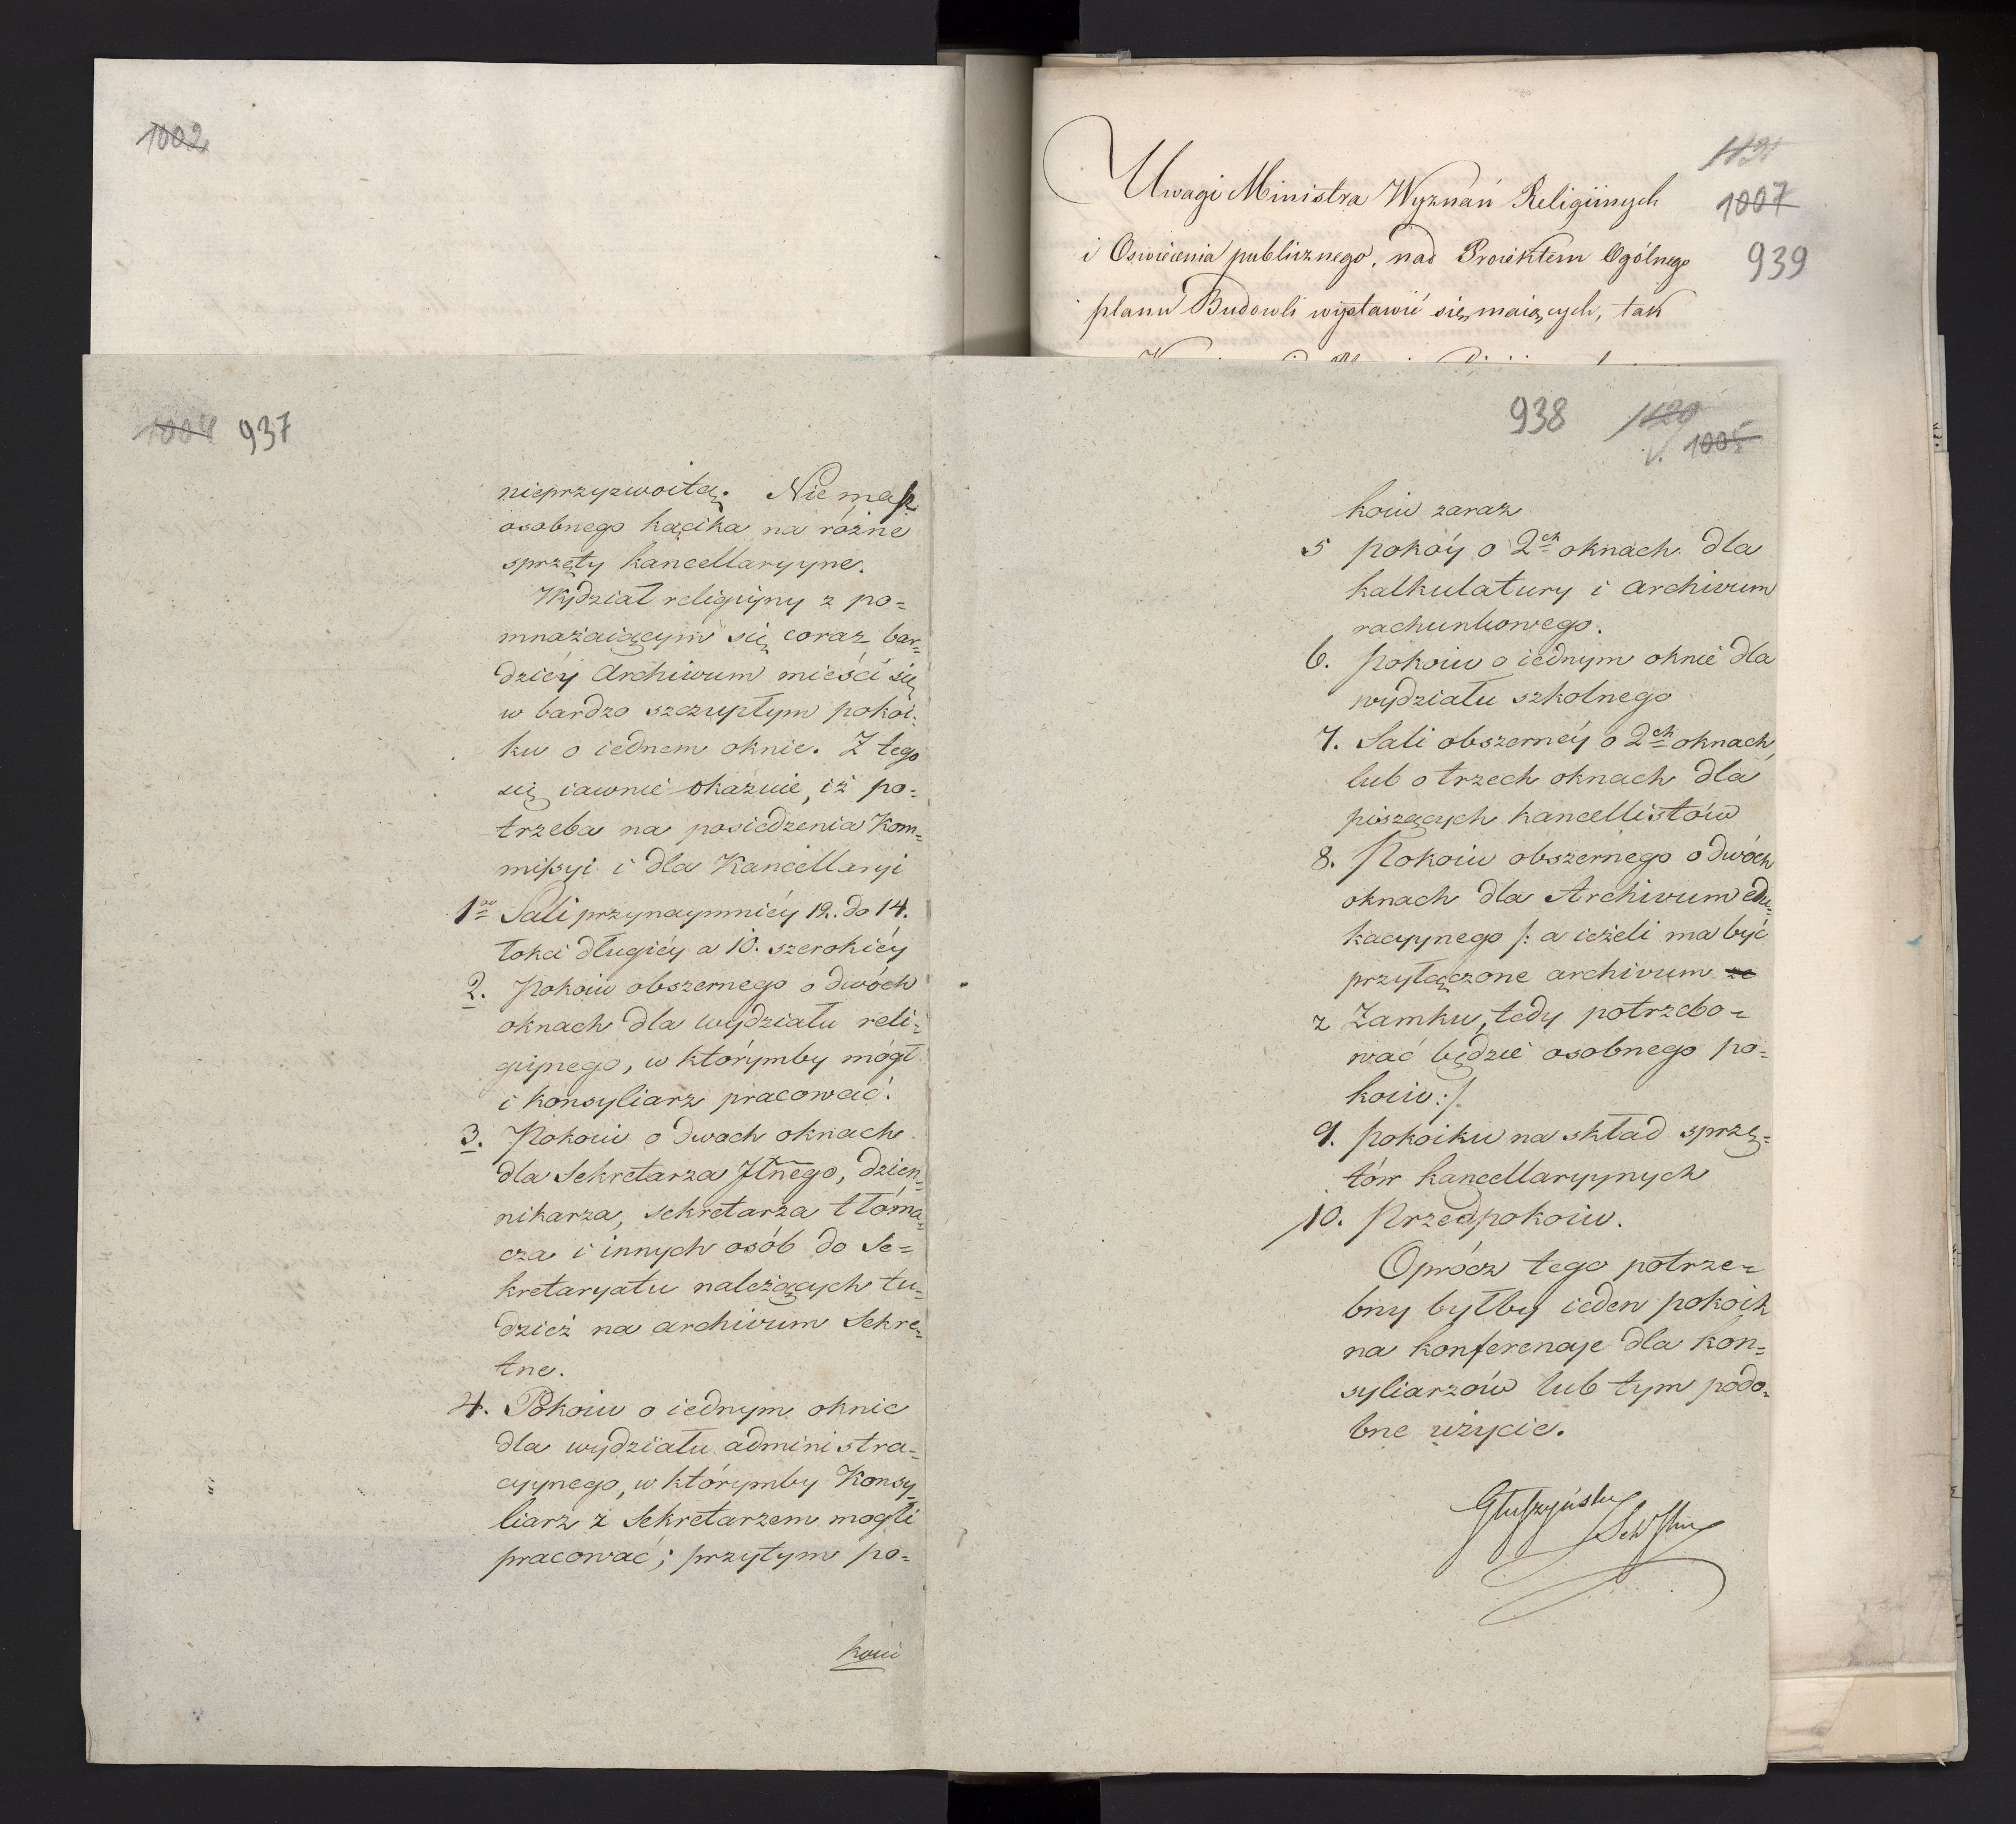 1002
1121
Uwagi Ministra Wyznań Religiinych
1007
i Oswiecenia publicznego, nad Proiektem Ogólnego
939
planu Budowli wystawić się maiących, tak
1004 937
nieprzyzwoitą. Nie masz
osobnego kącika na różne
sprzęty kancellaryyne.
Wydział religiyny z po=
mnażaiącym się coraz bar=
dziéy Archiwum mieści się
w bardzo szczupłym pokoi=
ku o iednem oknie. Z tego
się iawnie okazuie, iż po=
trzeba na posiedzenia Kom=
missyi i dla Kancellaryi
1mo Sali przynaymniéy 12. do 14.
łokci długiéy a 10. szerokiéy
2. Pokoiu obszernego o dwóch
oknach dla wydziału reli=
giynego, w którymby mógł
i konsyliarz pracować.
3. Pokoiu o dwoch oknach
dla Sekretarza Jlnego, dzien=
nikarza, sekretarza tłóma=
cza i innych osób do Se=
kretaryatu należących tu=
dzież na archivum Sekre=
tne.
4. Pokoiu o iednym oknie
dla wydziału administra=
cyynego, w którymby Konsy=
liarz z Sekretarzem mogli
pracować; przytym po=
koiu
938 1120
1005
koiu zaraz
5 pokóy o 2ch oknach dla
kalkulatury i archivum
rachunkowego.
6. Pokoiu o iednym oknie dla
wydziału szkolnego
7. Sali obszernéy o 2ch oknach
lub o trzech oknach dla
piszących kancellistów
8. Pokoiu obszernego o dwóch
oknach dla Archivum edu=
kacyynego /: a ieżeli ma być
przyłączone archivum ze
z Zamku, tedy potrzebo=
wać będzie osobnego po=
koiu :/
9. pokoiku na skład sprzę=
tów kancellaryynych
10. Przedpokoiu.
Oprócz tego potrze=
bny byłby ieden pokoik
na konferencje dla kon=
syliarzów lub tym podo=
bne użycie.
Głuszyński